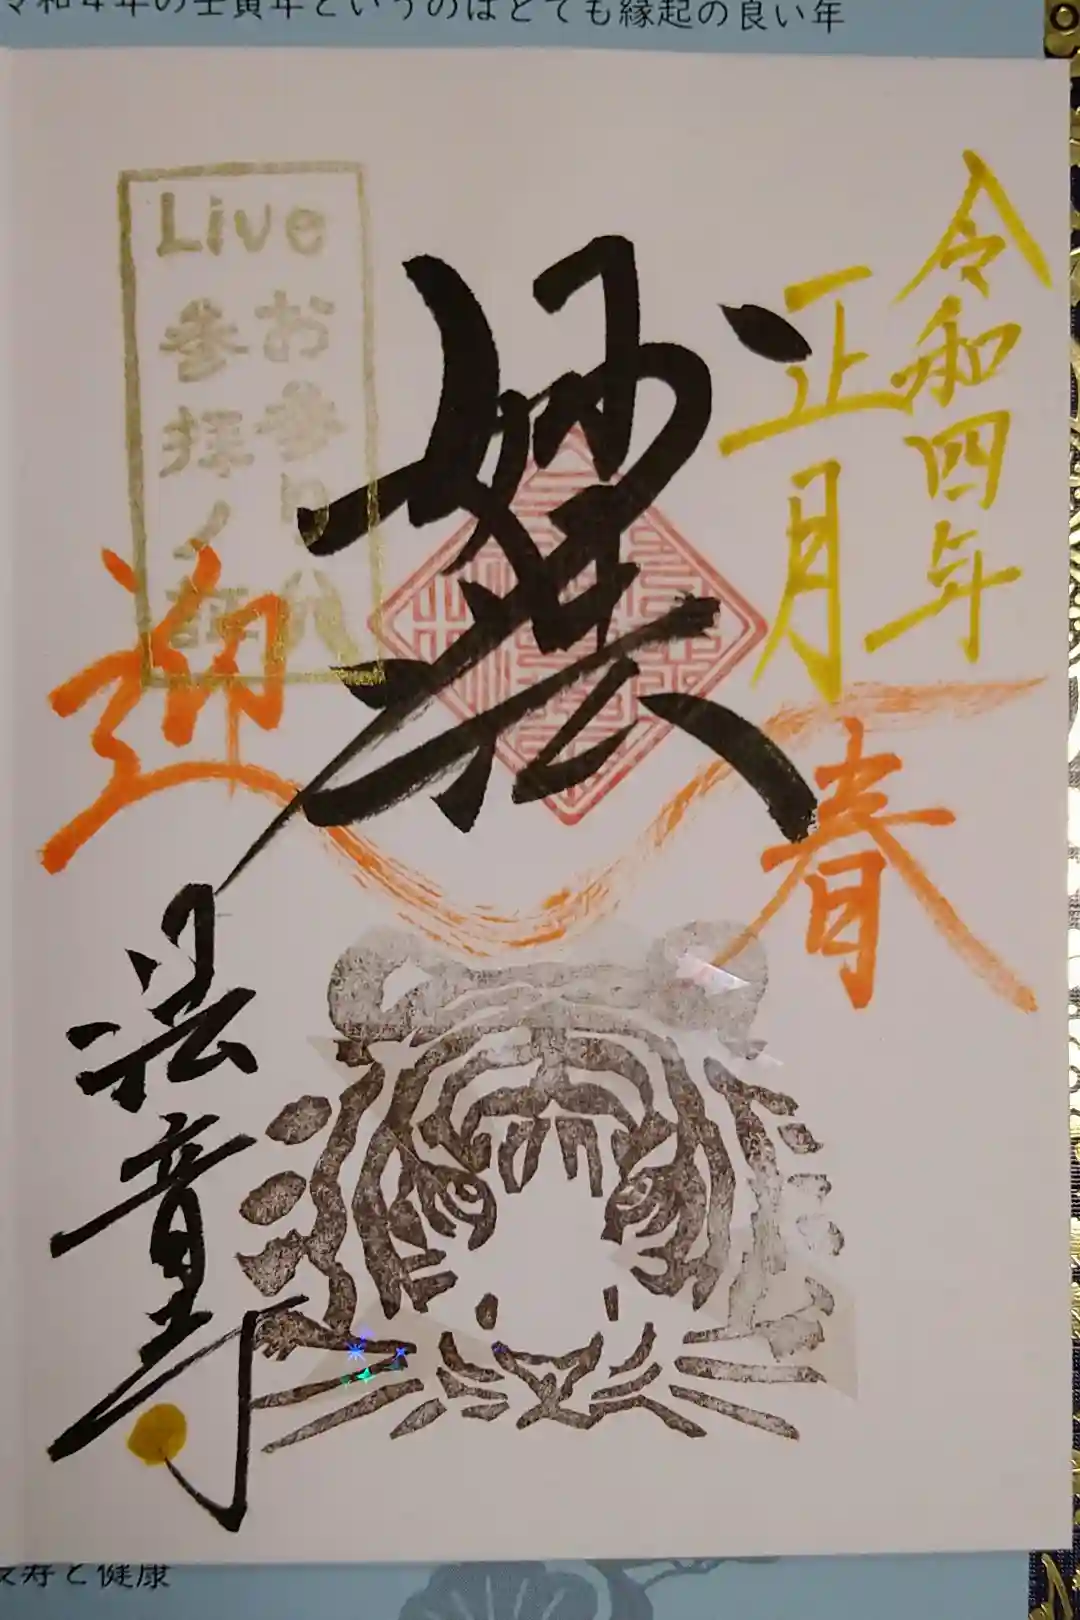 令和4年の壬寅年というのはとても縁起の良い年
令和四年
正月
迎春
妙法
Live
お参り八
参拝ノ証
法章寺
長寿と健康